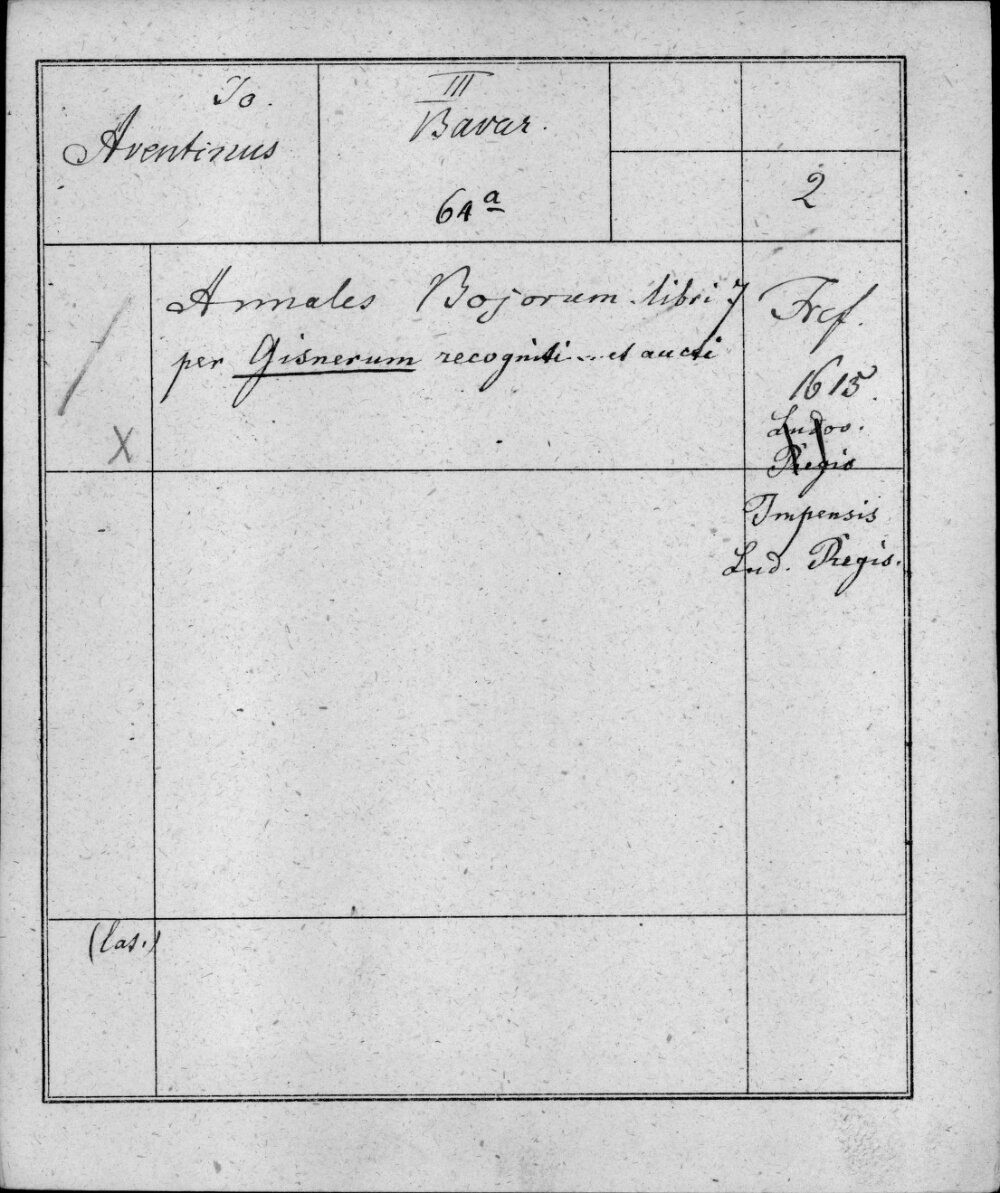 Io.
Aventinus
III
Bavar.
64a
2
Annales Bojorum libri 7
per Gisnerum recogniti... et aucti
Frcf.
1615.
Ludov.
Regis
Impensis
Lud. Regis.
X
(las.)